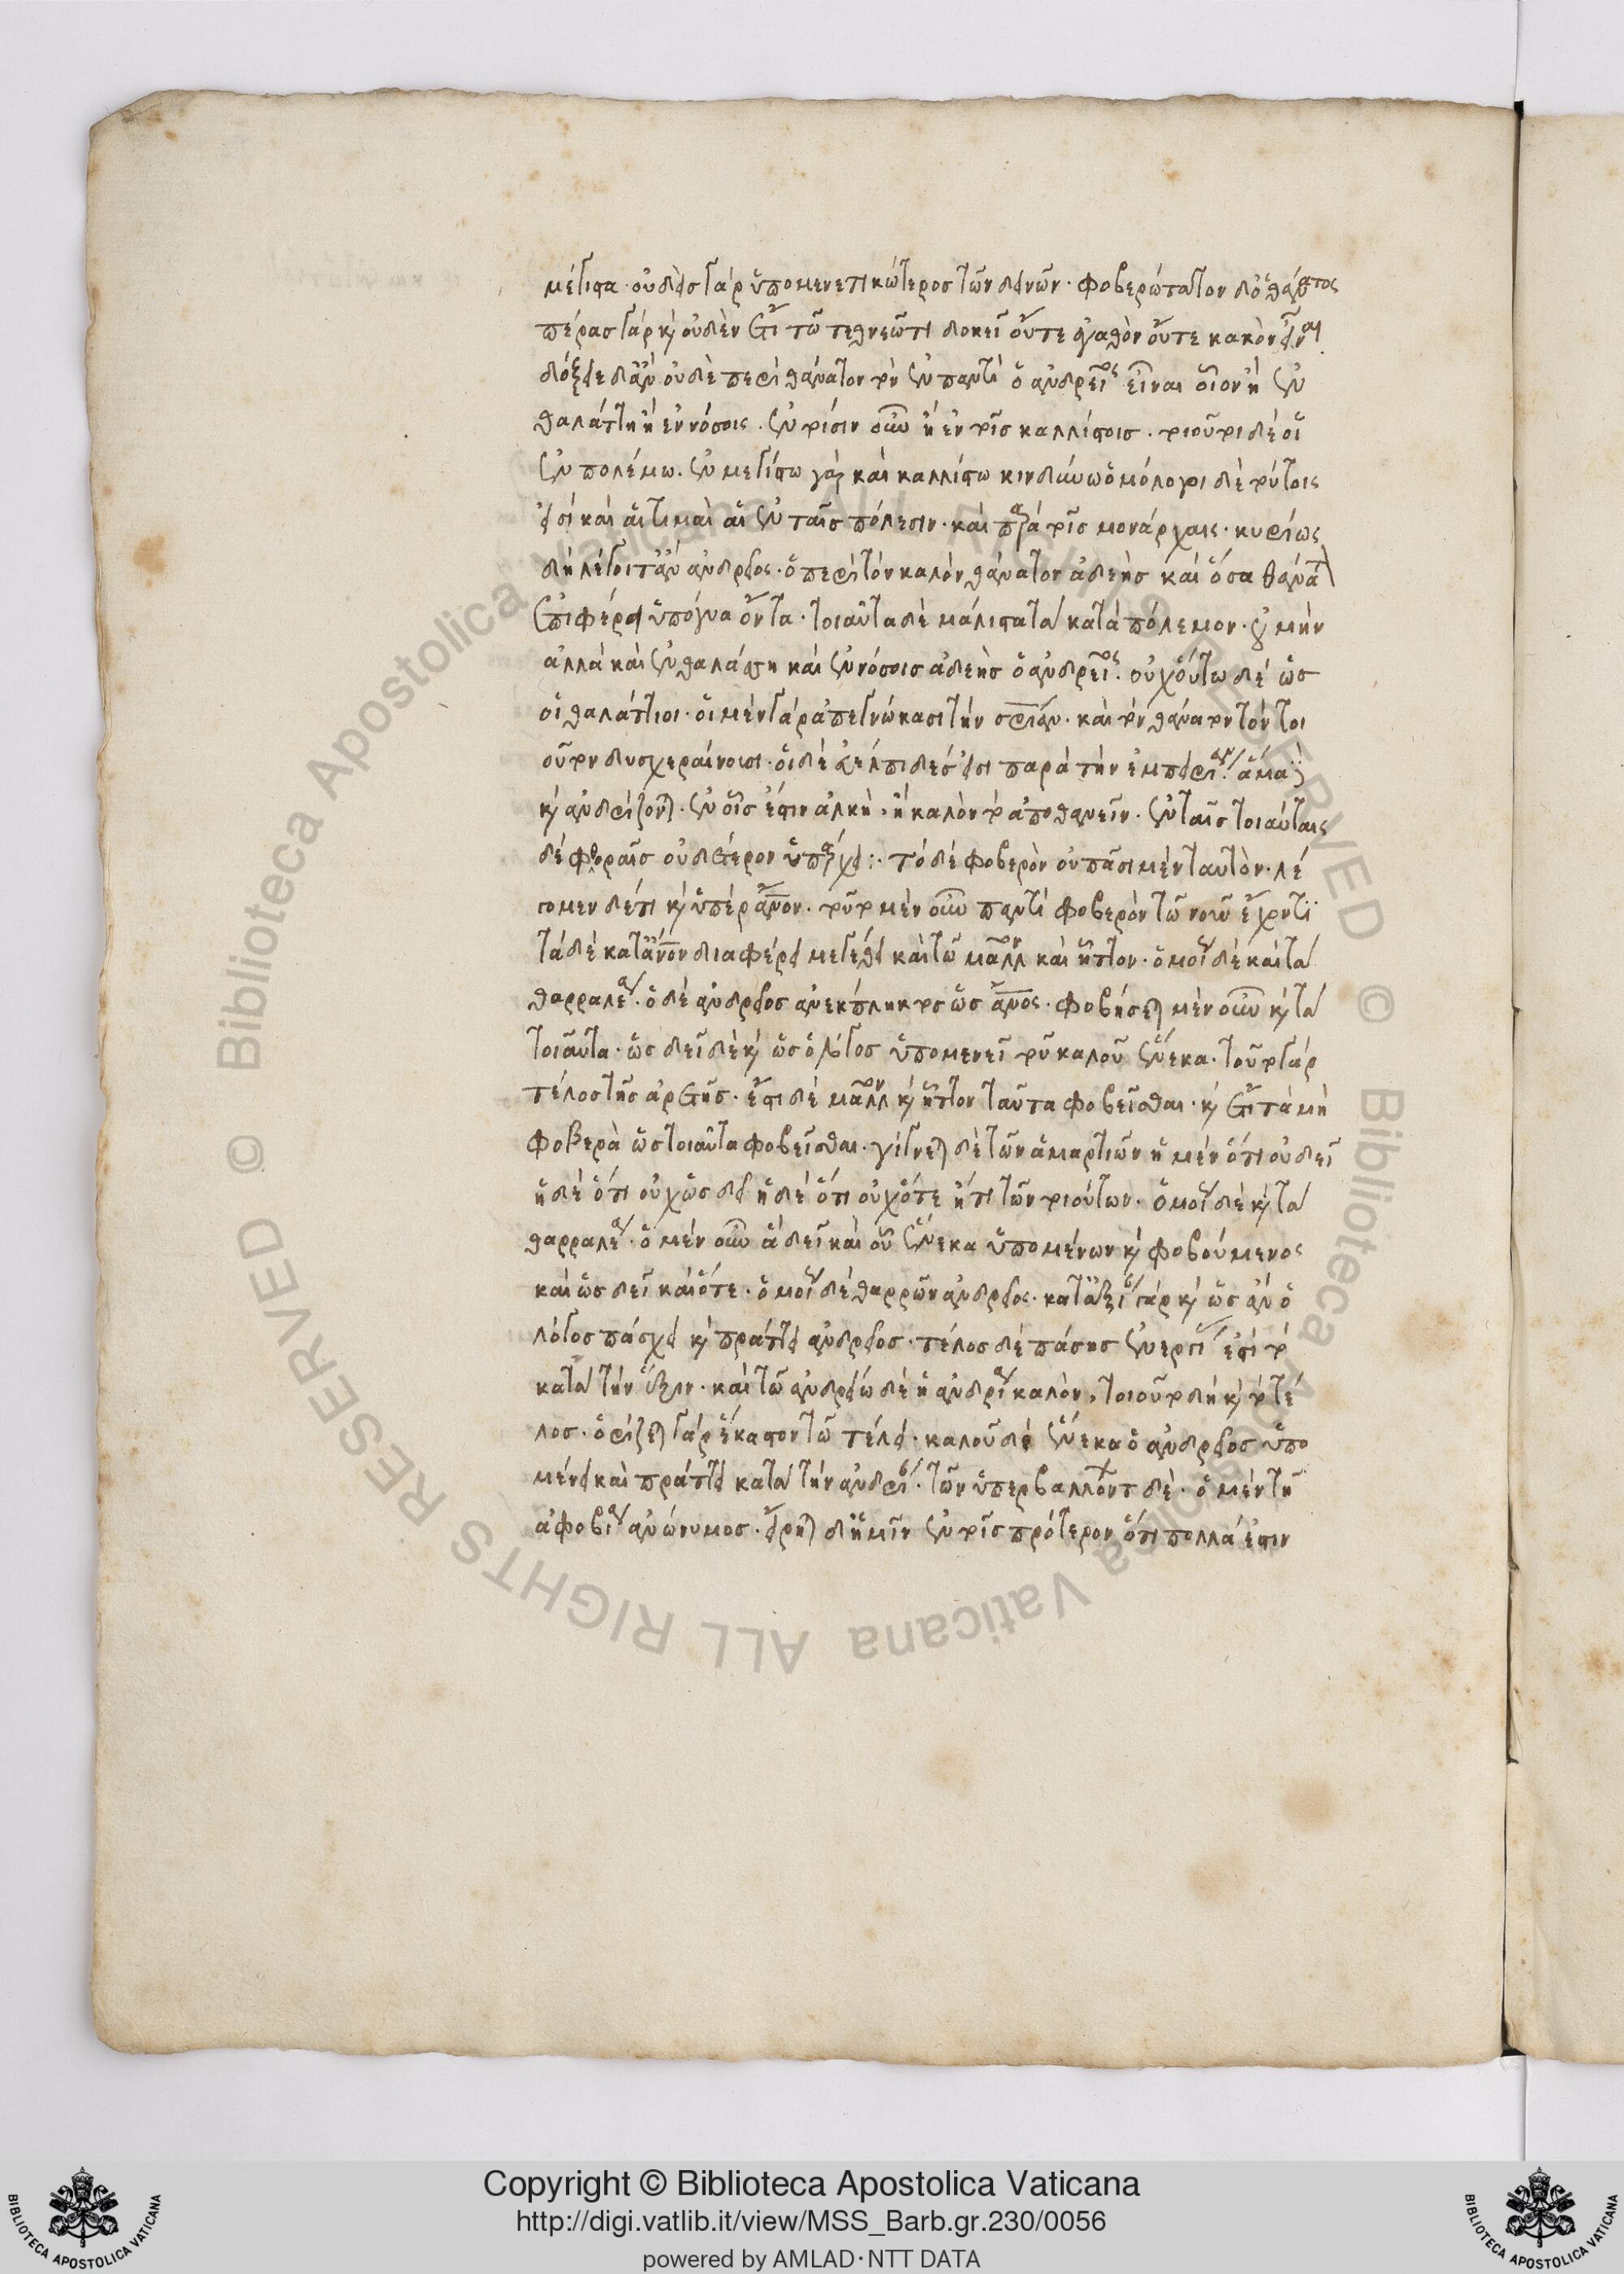 μέγιστα· οὐδεὶς γὰρ ὑπομενετικώτερος τῶν δεινῶν· φοβερώτατον δ' ὁ θάνατος
πέρας γάρ κ οὐδὲν ἔτι τῶ τεθνεῶτι δοκεῖ οὔτε ἀγαθὸν οὔτε κακὸν εἶναι
δόξειε δ' ἂν οὐδὲ περὶ θάνατον τὸν ἐν παντὶ ὁ ἀνδρεῖος εἶναι οἷον ἢ ἐν
θαλάττη ἢ ἐν νόσοις. ἐν τίσιν οὖν ἢ ἐν τοῖς καλλίστοις. τοιοῦτοι δὲ οἱ
ἐν πολέμω. ἐν μεγίστω γὰρ καὶ καλλίστω κινδύνω ὁμόλογοι δὲ τούτοις
εἰσί καὶ αἱ τιμαὶ αἱ ἐν ταῖς πόλεσιν· καὶ παρὰ τοῖς μονάρχαις· κυρίως
δὴ λέγοιτ' ἂν ἀνδρεῖος· ὁ περὶ τὸν καλὸν θάνατον ἀδεὴς καὶ ὅσα θάνατον
ἐπιφέρει ὑπόγυα ὄντα· τοιαῦτα δὲ μάλιστα τὰ κατὰ πόλεμον· οὐ μὴν
ἀλλὰ καὶ ἐν θαλάττη καὶ ἐν νόσοις ἀδεὴς ὁ ἀνδρεῖος· οὐχ οὕτω δέ ὡς
οἱ θαλάττιοι· οἱ μὲν γὰρ ἀπεγνώκασι τὴν σωτηρίαν· καὶ τὸν θάνατον τὸν τοι
οῦτον δυσχεραίνουσι· οἱ δὲ εὐέλπιδές εἰσι παρὰ τὴν ἐμπειρίαν· ἅμα δὲ
κ ἀνδρίζονται· ἐν οἷς ἐστιν ἀλκὴ, ἢ καλὸν τὸ ἀποθανεῖν· ἐν ταῖς τοιαύταις
δὲ φθοραῖς οὐδέτερον ὑπάρχει:· τὸ δὲ φοβερὸν οὐ πᾶσι μὲν ταυτὸν· λέ
γομεν δέ τι κ ὑπὲρ ἄνον· τοῦτο μὲν οὖν παντὶ φοβερὸν τῶ νοῦν ἔχοντι
τὰ δὲ κατ' ἄνον διαφέρει μεγέθει καὶ τῶ μᾶλλον καὶ ἧττον· ὁμοίως δὲ καὶ τὰ
θαρραλέα· ὁ δὲ ἀνδρεῖος ἀνέκπληκτος ὡς ἄνος· φοβήσεται μὲν οὖν κ τὰ
τοιαῦτα· ὡς δεῖ δὲ κ ὡς ὁ λόγος ὑπομενεῖ τοῦ καλοῦ ἕνεκα· τοῦτο γὰρ
τέλος τῆς ἀρετῆς· ἔστι δὲ μᾶλλον κ ἧττον ταῦτα φοβεῖσθαι· κ ἔτι τὰ μὴ
φοβερὰ ὡς τοιαῦτα φοβεῖσθαι· γίγνεται δὲ τῶν ἁμαρτιῶν ἡ μὲν ὅτι οὐ δεῖ
ἡ δὲ ὅτι οὐχ ὡς δεῖ ἡ δὲ ὅτι οὐχ ὅτε ἤ τι τῶν τοιούτων· ὁμοίως δὲ κ τὰ
θαρραλέα· ὁ μὲν οὖν ἃ δεῖ καὶ οὗ ἕνεκα ὑπομένων κ φοβούμενος
καὶ ὡς δεῖ καὶ ὅτε· ὁμοίως δὲ θαρρῶν ἀνδρεῖος· κατ' ἀξίαν γὰρ κ ὡς ἂν ὁ
λόγος πάσχει κ πράττει ἀνδρεῖος· τέλος δὲ πάσης ἐνεργείας ἐστὶ τὸ
κατὰ τὴν ἕξιν· καὶ τῶ ἀνδρείω δὲ ἡ ἀνδρεία καλὸν, τοιοῦτο δὴ κ τὸ τέ
λος· ὁρίζεται γὰρ ἕκαστον τῶ τέλει· καλοῦ δὲ ἕνεκα ὁ ἀνδρεῖος ὑπο
μένει καὶ πράττει κατὰ τὴν ἀνδρείαν· τῶν ὑπερβαλλόντων δὲ· ὁ μὲν τῆ
ἀφοβία ἀνώνυμος· εἴρηται δ' ἡμῖν ἐν τοῖς πρότερον ὅτι πολλά ἐστιν
Copyright © Biblioteca Apostolica Vaticana
http://digi.vatlib.it/view/MSS_Barb.gr.230/0056
powered by AMLAD·NTT DATA
BIBLIOTECA APOSTOLICA VATICANA
BIBLIOTECA APOSTOLICA VATICANA
© Biblioteca Apostolica Vaticana ALL RIGHTS RESERVED © Biblioteca Apostolica Vaticana ALL RIGHTS RESERVED